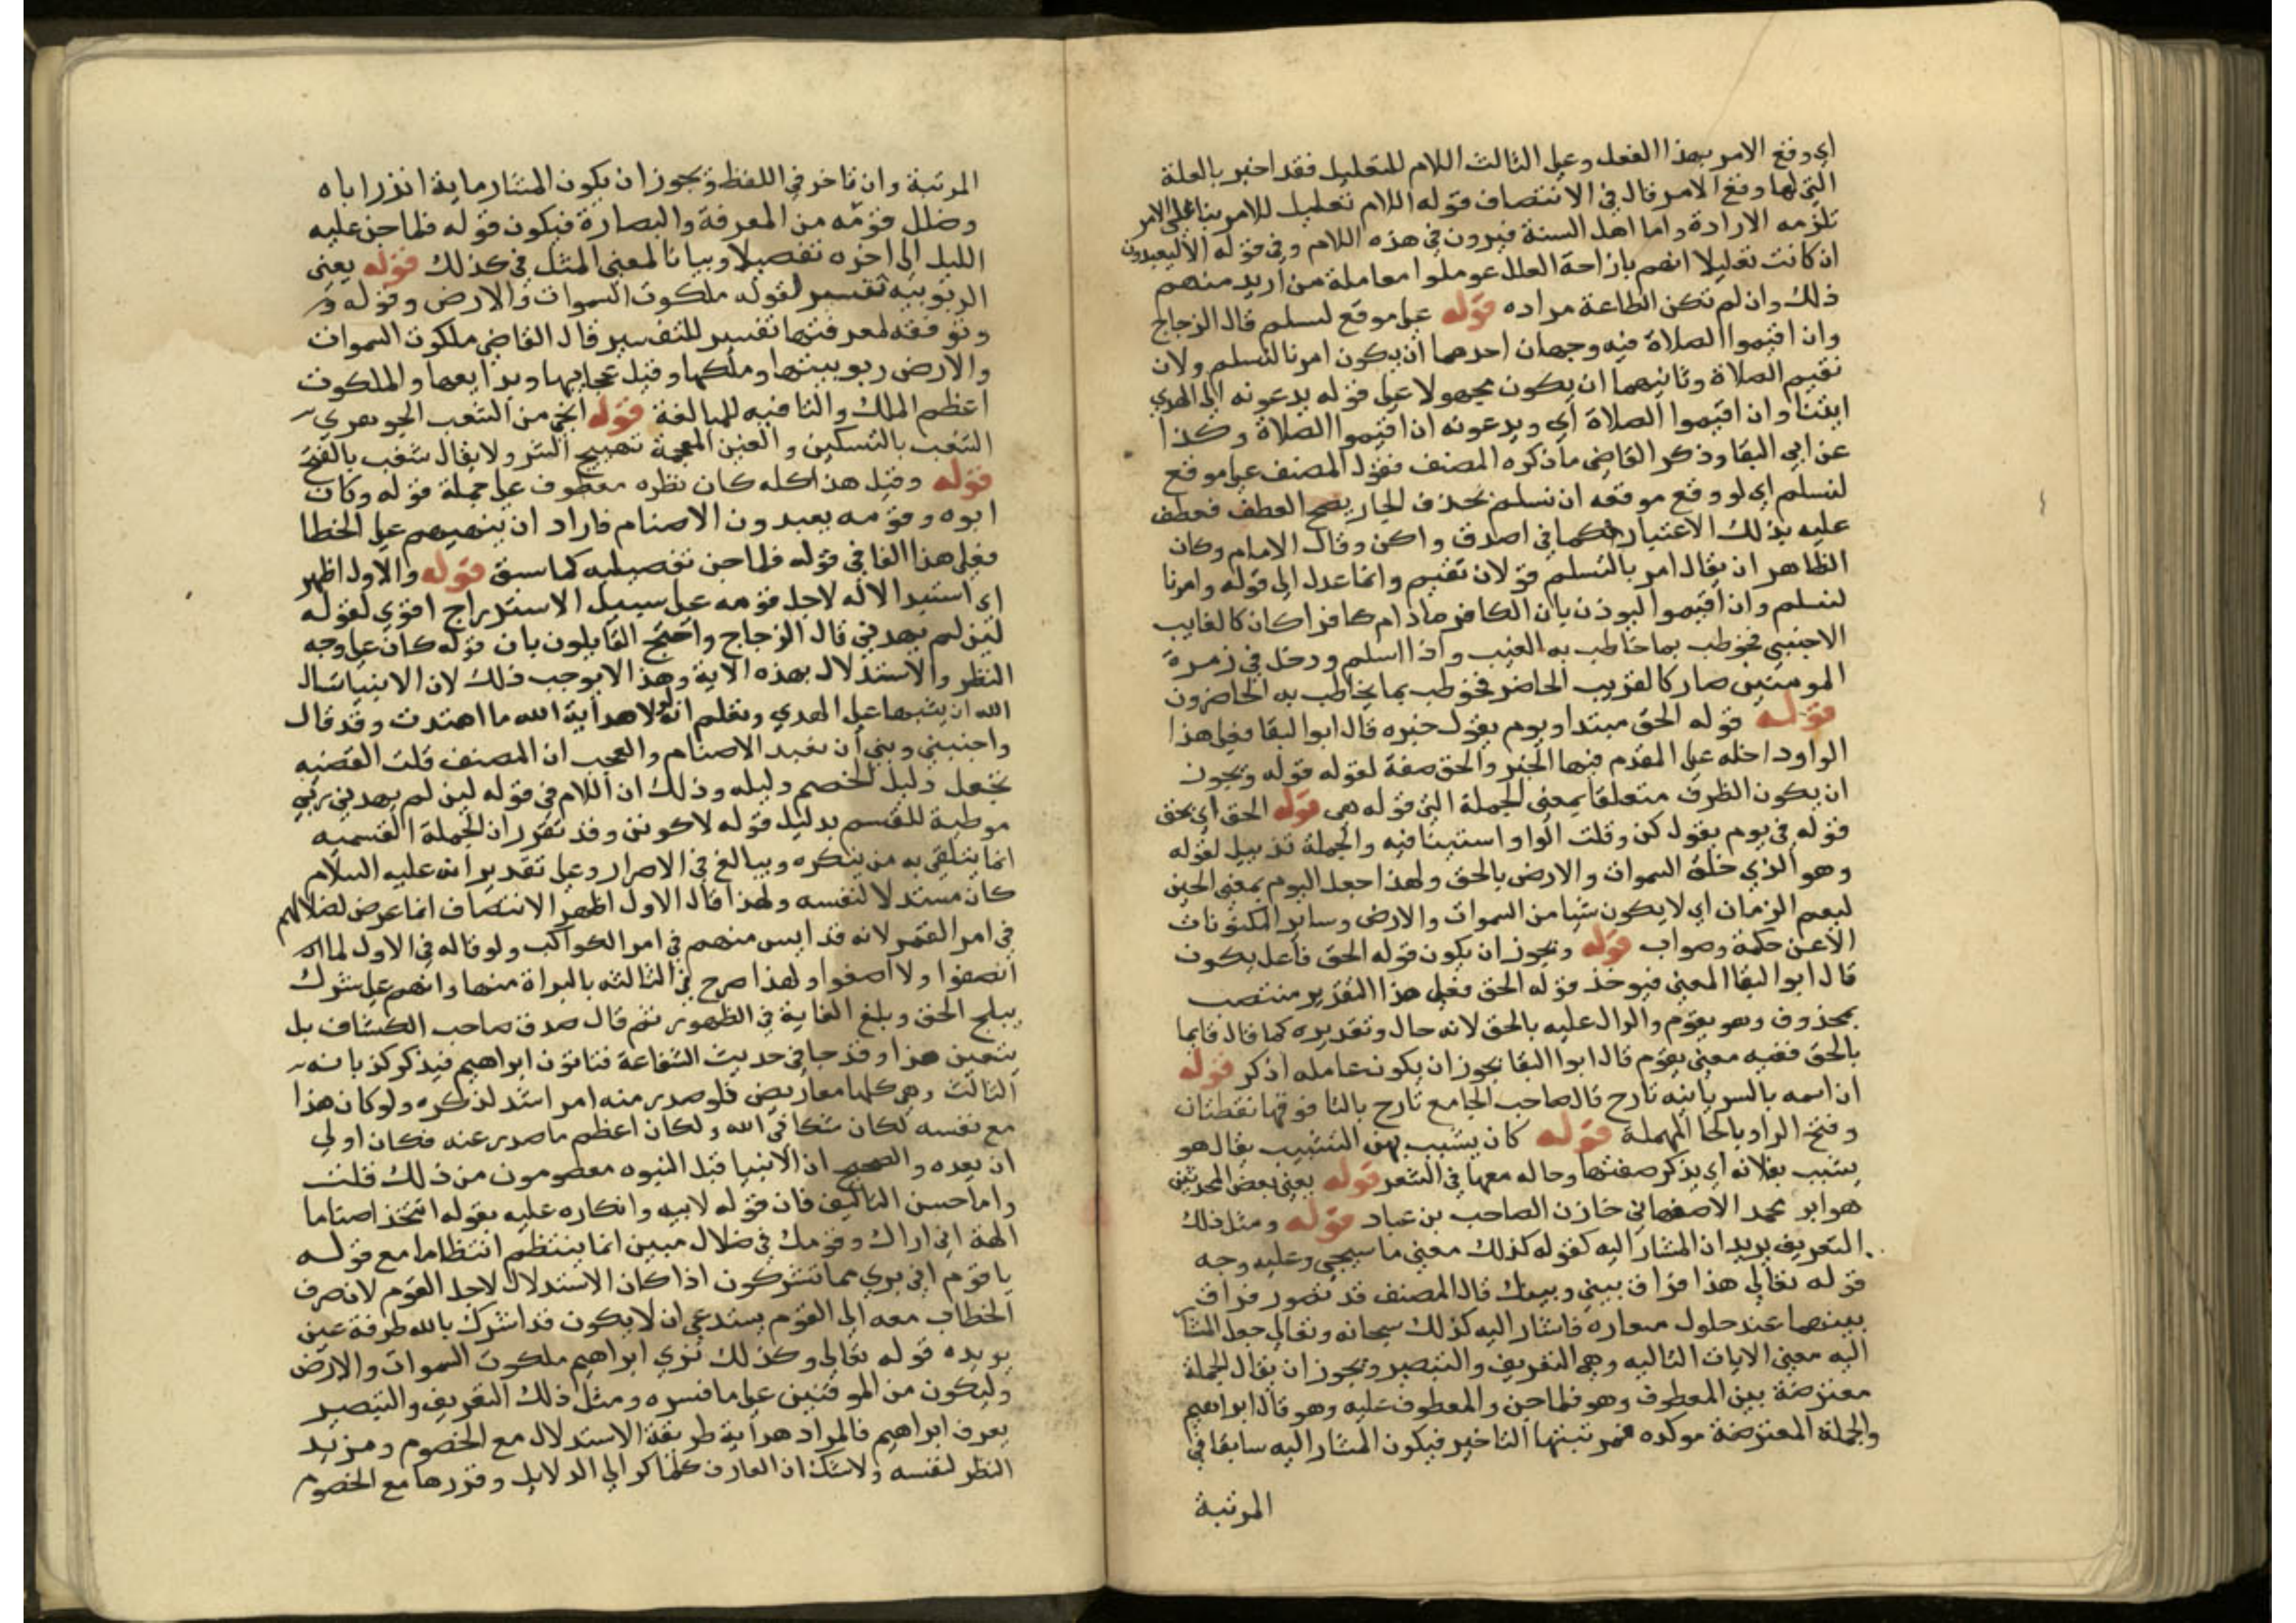 اي وقع الامر بهذا الفعل وعلى الثالث اللام للتعليل فقد اخبر بالعلة
التي لها وقع الامر قال في الانتصاف قوله اللام تعليل للامر بنا على الامر
تلزمه الارادة واما اهل السنة فيرون في هذه اللام وفي قوله الا ليعبدون
ان كانت تعليلا انهم بازاحة العلل عوملوا معاملة من اريد منهم
ذلك وان لم تكن الطاعة مراده قوله على موقع لنسلم قال الزجاج
وان اقيموا الصلاة فيه وجهان احدهما ان يكون امرنا لنسلم ولان
نقيم الصلاة وثانيهما ان يكون محمولا على قوله يدعونه الى الهدي
ايتنا وان اقيموا الصلاة اي ويدعونه ان اقيموا الصلاة وكذا
عن ابي البقا وذكر القاضي ما ذكره المصنف فقول المصنف على موقع
لنسلم اي لو وقع موقعه ان نسلم بحذف الجار يصح العطف فعطف
عليه بذلك الاعتبار كما في اصدق واكن وقال الامام وكان
الظاهر ان يقال امر بالتسلم قولان تقيم وانما عدل الى قوله وامرنا
لنسلم وان اقيموا ليوذن بان الكافر ما دام كافرا كان كالغايب
الاجنبي فخوطب بما خاطب به الغيب واذا اسلم ودخل في زمرة
المومنين صار كالقريب الحاضر فخوطب بما يخاطب به الحاضرون
قوله قوله الحق مبتدا ويوم يقول خبره قال ابوا البقا فعلى هذا
الواو داخله على المقدم فيها الخبر والحق صفة لقوله قوله ويجوز
ان يكون الظرف متعلقا بمعني الجملة التي قوله هي قوله الحق اي يحق
قوله في يوم يقول كن وقلت الواو استينافيه والجملة تذييل لقوله
وهو الذي خلق السموات والارض بالحق ولهذا جعل اليوم بمعنى الحين
ليعم الزمان اي لا يكون شيا من السموات والارض وساير المكنونات
الا عن حكمة وصواب قوله ويجوز ان يكون قوله الحق فاعل يكون
قال ابوا البقا المعني فيوخذ قوله الحق فعلى هذا التقدير منتصب
بمحذوف وهو يقوم والدال عليه بالحق لانه حال وتقديره كما قال قايما
بالحق ففيه معني يقوم قال ابوا البقا يجوز ان يكون عامله اذكر قوله
ان اسمه بالسريانيه تارح قال صاحب الجامع تارح بالتا فوقها نقطتان
وفتح الرا وبالحا المهملة قوله كان يشبب بهن التشبيب يقال هو
يشبب بفلانه اي يذكر صفتها وحاله معها في الشعر قوله يعني بعض المحدثين
هو ابو محمد الاصفهاني خازن الصاحب بن عباد قوله ومثل ذلك
التعريف يريد ان المشار اليه كقوله كذلك معني ما سيجي وعليه وجه
قوله تعالى هذا فراق بيني وبينك قال المصنف قد تصور فراق
بينهما عند حلول ميعاده فاشار اليه كذلك سبحانه وتعالى جعل المشار
اليه معني الايات التاليه وهي التعريف والتبصير ويجوز ان يقال الجملة
معترضة بين المعطوف وهو فلما جن والمعطوف عليه وهو قال ابراهيم
والجملة المعترضة موكده فمرتبتها التاخير فيكون المشار اليه سابقا في
المرتبة
المرتبة وان تاخر في اللفظ ويجوز ان يكون المشار ما به انذر اباه
وضلل قومه من المعرفة والبصارة فيكون قوله فلما جن عليه
الليل الى اخره تفصيلا وبيانا لمعني المثل في كذلك قوله يعني
الربوبيه تفسير لقوله ملكوت السموات والارض وقوله و
ونوفقه لمعرفتها تفسير للتفسير قال القاضي ملكوت السموات
والارض ربوبيتها وملكها وقيل عجايبها وبدايعها والملكوت
اعظم الملك والتا فيه للمبالغة قوله انجى من الشغب الجوهري
الشغب بالتسكين والغين المعجمة تهييج الشر ولا يقال شغب بالفتح
قوله وقيل هذا كله كان نظره معطوف على جملة قوله وكان
ابوه وقومه يعبدون الاصنام فاراد ان ينبههم على الخطا
فعلى هذا الفا في قوله فلما جن تفصيليه كما سبق قوله والاول اظهر
اي استبدالاله لاجل قومه على سبيل الاستدراج اقوي لقوله
لين لم يهدني قال الزجاج واحتج القايلون بان قوله كان على وجه
النظر والاستدلال بهذه الاية وهذا لا يوجب ذلك لان الانبيا تسال
الله ان يثبتها على الهدي وتعلم انه لولا هداية الله ما اهتدت وقد قال
واجنبني وبني ان نعبد الاصنام والعجب ان المصنف قلت القضيه
بجعل دليل الخصم دليله وذلك ان اللام في قوله لين لم يهدني ربي
موطية للقسم بدليل قوله لاكونن وقد تقرر ان الجملة القسميه
انما يتلقى به من ينكره ويبالغ في الاصرار وعلى تقدير انه عليه السلام
كان مستدلا لنفسه ولهذا قال الاول اظهر الانتصاف انما عرض لضلالهم
في امر القمر لانه قد ايس منهم في امر الكواكب ولو قاله في الاول لما
انصفوا ولا اصغوا ولهذا صرح في الثالثه بالبراة منها وانهم على شرك
يبلج الحق وبلغ الغاية في الظهور ثم قال صدق صاحب الكشاف بل
يتعين هذا وقد جا في حديث الشفاعة فتاتون ابراهيم فيذكر كذباته
الثالث وهي كلها معاريض فلو صدر منه امر اشد لذكره ولو كان هذا
مع نفسه لكان شكا في الله ولكان اعظم ما صدر عنه فكان اولي
ان يعده والصحيح ان الانبيا قبل النبوه معصومون من ذلك قلت
واما حسن التاليف فان قوله لابيه وانكاره عليه بقوله اتتخذ اصناما
الهة اني اراك وقومك في ضلال مبين انما ينتظم انتظاما مع قوله
يا قوم اني بري مما تشركون اذا كان الاستدلال لاجل القوم لانصرف
الخطاب معه الى القوم يستدعي ان لا يكون قد اشرك بالله طرفة عين
يويده قوله تعالى وكذلك نري ابراهيم ملكوت السموات والارض
وليكون من الموقنين على ما فسره ومثل ذلك التعريف والتبصير
يعرف ابراهيم فالمراد هداية طريقة الاستدلال مع الخصوم ومزيد
النظر لنفسه ولا شك ان العارف كلما كر الى الدلايل وقررها مع الخصوم